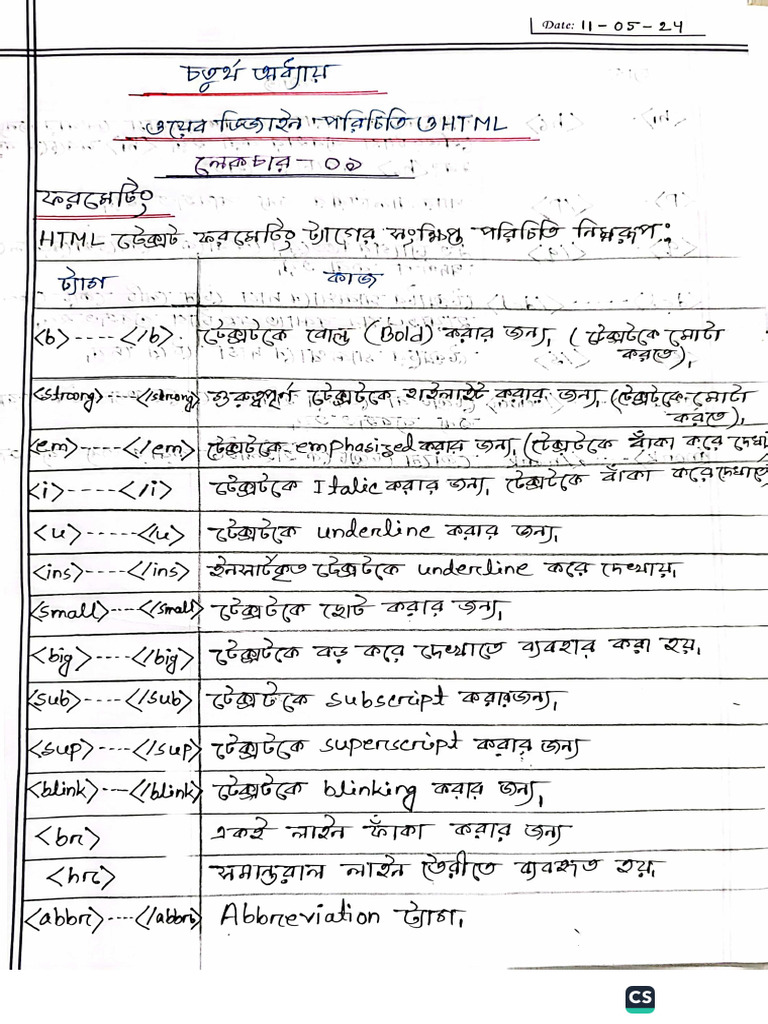 Date: 11-05-24
চতুর্থ অধ্যায়
ওয়েব ডিজাইন পরিচিতি ও HTML
লেকচার - ০৯
ফরমেটিং
HTML টেক্সট ফরমেটিং ট্যাগের সংক্ষিপ্ত পরিচিতি নিম্নরূপ:
ট্যাগ কাজ
<b>----</b> টেক্সটকে বোল্ড (Bold) করার জন্য, (টেক্সটকে মোটা
করতে),
<strong>----</strong> গুরুত্বপূর্ণ টেক্সটকে হাইলাইট করার জন্য, (টেক্সটকে মোটা
করতে),
<em>----</em> টেক্সটকে emphasized করার জন্য, (টেক্সটকে বাঁকা করে
<i>----</i> টেক্সটকে Italic করার জন্য, টেক্সটকে বাঁকা করে দেখাতে
<u>-----</u> টেক্সটকে underline করার জন্য,
<ins>----</ins> ইনসার্টকৃত টেক্সটকে underline করে দেখায়,
<small>----</small> টেক্সটকে ছোট করার জন্য,
<big>----</big> টেক্সটকে বড় করে দেখাতে ব্যবহার করা হয়,
<sub>----</sub> টেক্সটকে subscript করার জন্য,
<sup>----</sup> টেক্সটকে superscript করার জন্য
<blink>---</blink> টেক্সটকে blinking করার জন্য,
<br> একই লাইন ফাঁকা করার জন্য
<hr> সমান্তরাল লাইন তৈরীতে ব্যবহৃত হয়,
<abbr>----</abbr> Abbreviation ট্যাগ,
CS